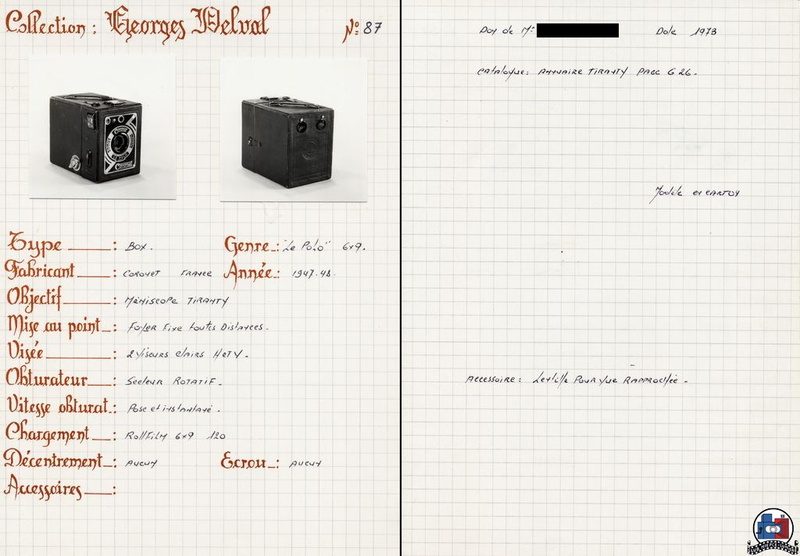 Collection : Georges Delval N°: 87
Type : Box.
Genre : "Le Polo" 6x9.
Fabricant : CORONET FRANCE
Année : 1947.48.
Objectif : Méniscope TIRANTY
Mise au point : Foyer Fixe toutes Distances.
Visée : 2 Viseurs clairs H et V.
Obturateur : Secteur ROTATIF.
Vitesse obturat. : Pose et instantané.
Chargement : Rollfilm 6x9 120
Décentrement : Aucun
Ecrou : Aucun
Accessoires :
Don de Mr Date 1973
Catalogue : ANNUAIRE TIRANTY PAGE G 26.
Modèle en carton
Accessoire : Lentille Pour Vue Rapprochée.